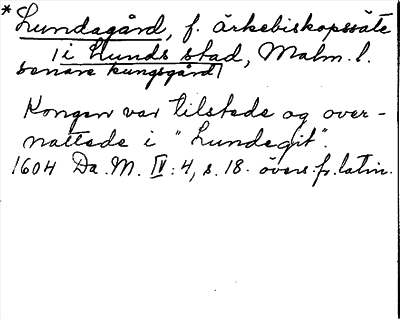 *Lundagård, f. ärkebiskopssäte
i Lunds stad, Malm. l.
senare kungsgård
Kongen var tilstede og over-
nattede i "Lundegit".
1604 Da. M. IV: 4, s. 18. övers. fr. latin.